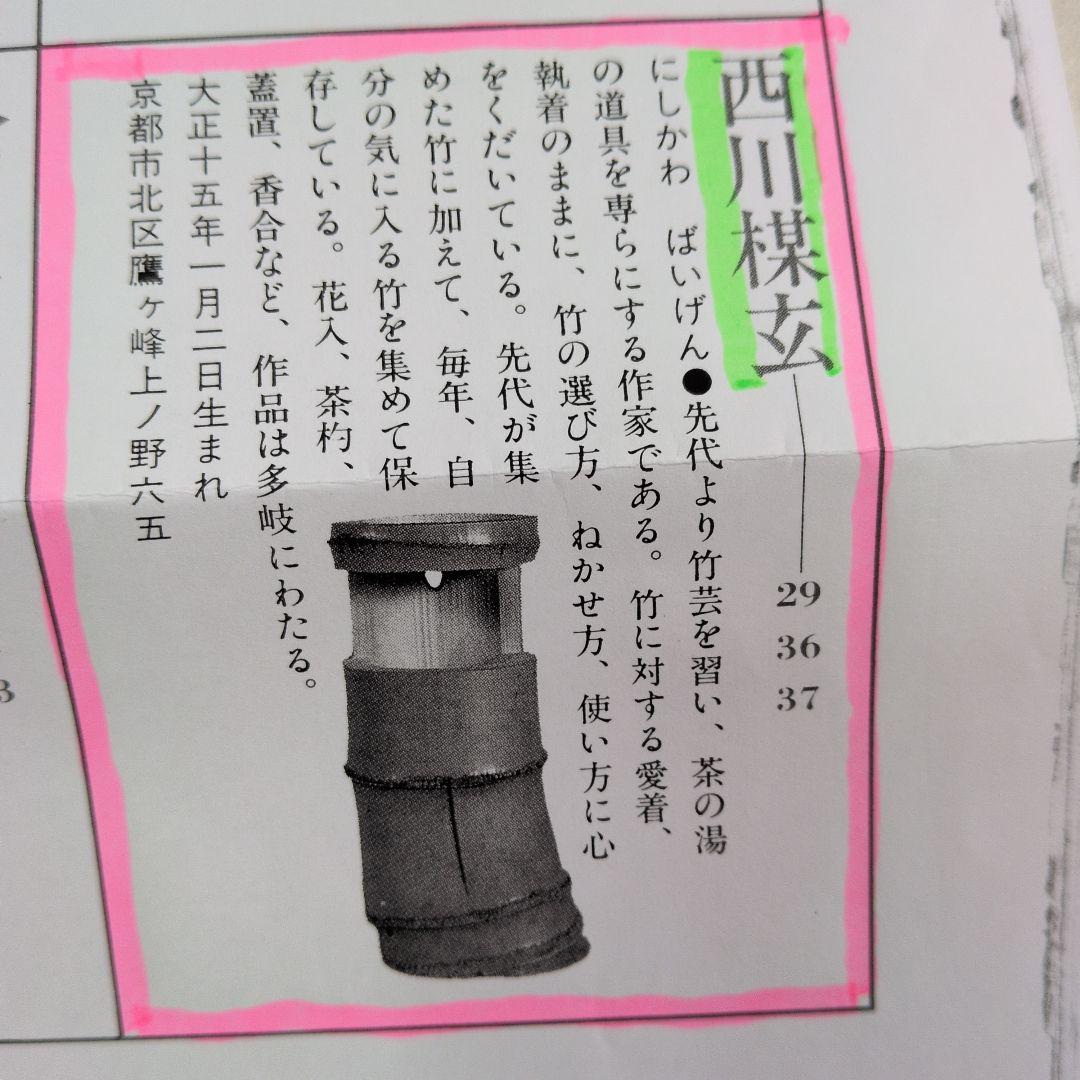 西川楳玄
29
36
37
にしかわ ばいげん●先代より竹芸を習い、茶の湯
の道具を専らにする作家である。竹に対する愛着、
執着のままに、竹の選び方、ねかせ方、使い方に心
をくだいている。先代が集
めた竹に加えて、毎年、自
分の気に入る竹を集めて保
存している。花入、茶杓、
蓋置、香合など、作品は多岐にわたる。
大正十五年一月二日生まれ
京都市北区鷹ヶ峰上ノ野六五
3